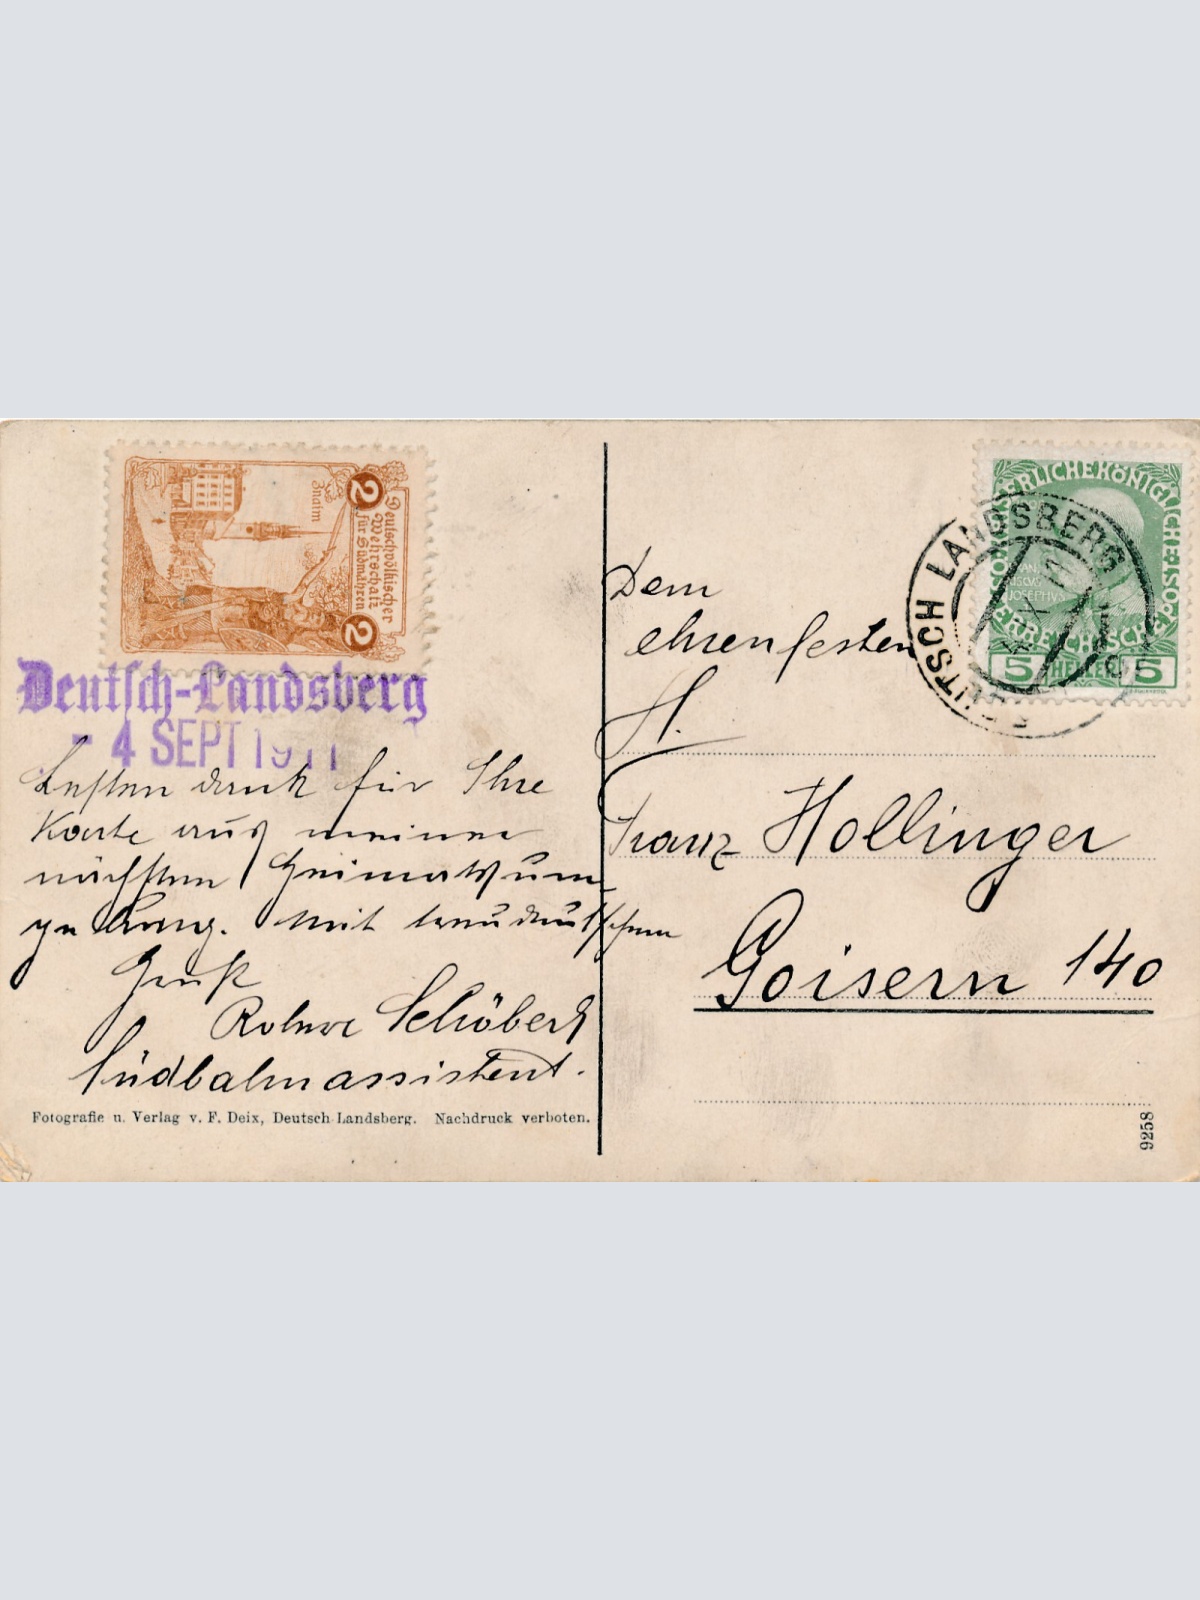 Deutschvölkischer
Wehrschatz
für Südmähren
2 2
Znaim
Deutsch-Landsberg
- 4 SEPT 1911
Besten Dank für Ihre
Karte aus meiner
nächsten Heimatsum-
gebung. Mit treudeutschem
Gruß
Schöberl
Südbahnassistent.
Fotografie u. Verlag v. F. Deix, Deutsch Landsberg. Nachdruck verboten.
KAISERLICHE KÖNIGLICHE
ÖSTERREICHISCHE POST
FRANCISCUS
JOSEPHVS
5 HELLER 5
DEUTSCH LANDSBERG
Dem
ehrenfesten
H.
Franz Hollinger
Goisern 140
9258